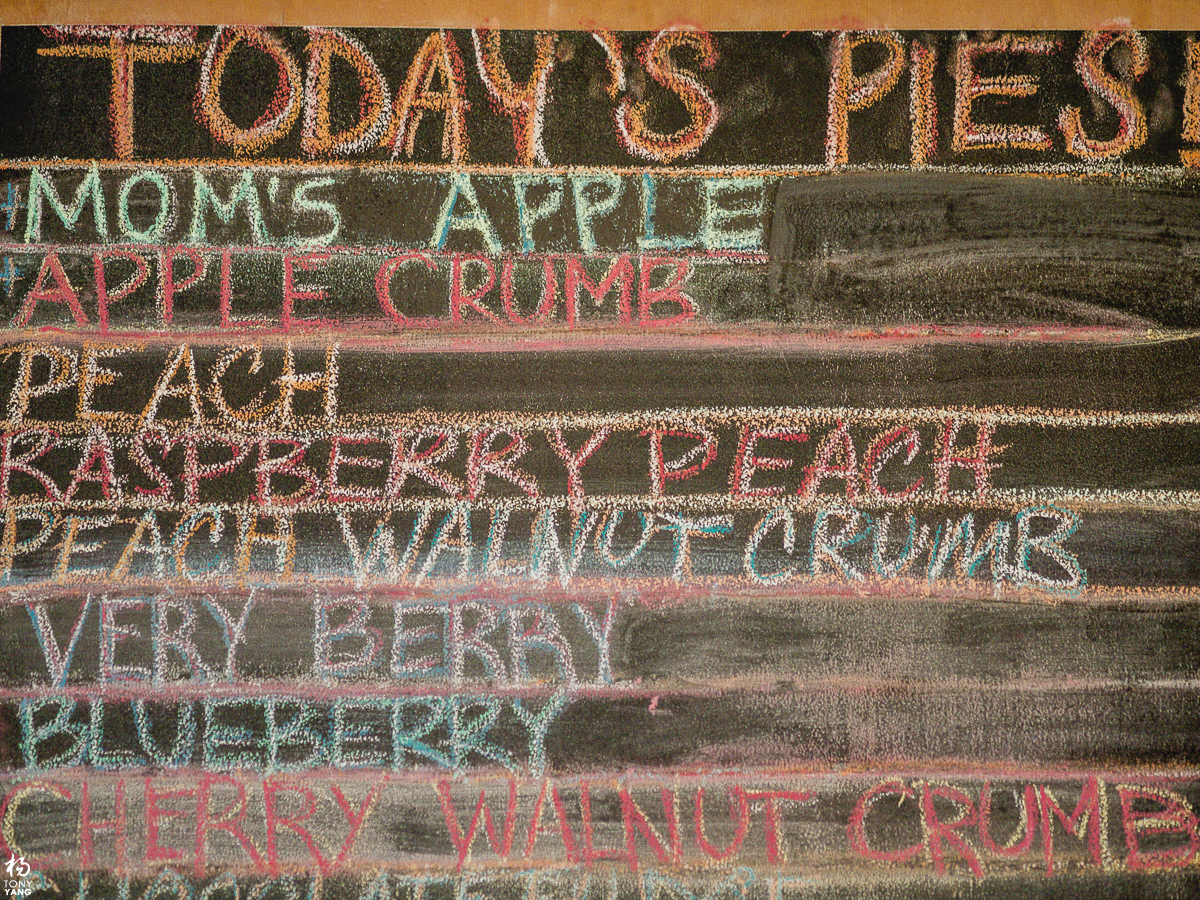 TODAY'S PIES!
+ MOM'S APPLE
+ APPLE CRUMB
PEACH
RASPBERRY PEACH
PEACH WALNUT CRUMB
VERY BERRY
BLUEBERRY
CHERRY WALNUT CRUMB
杨
TONY
YANG